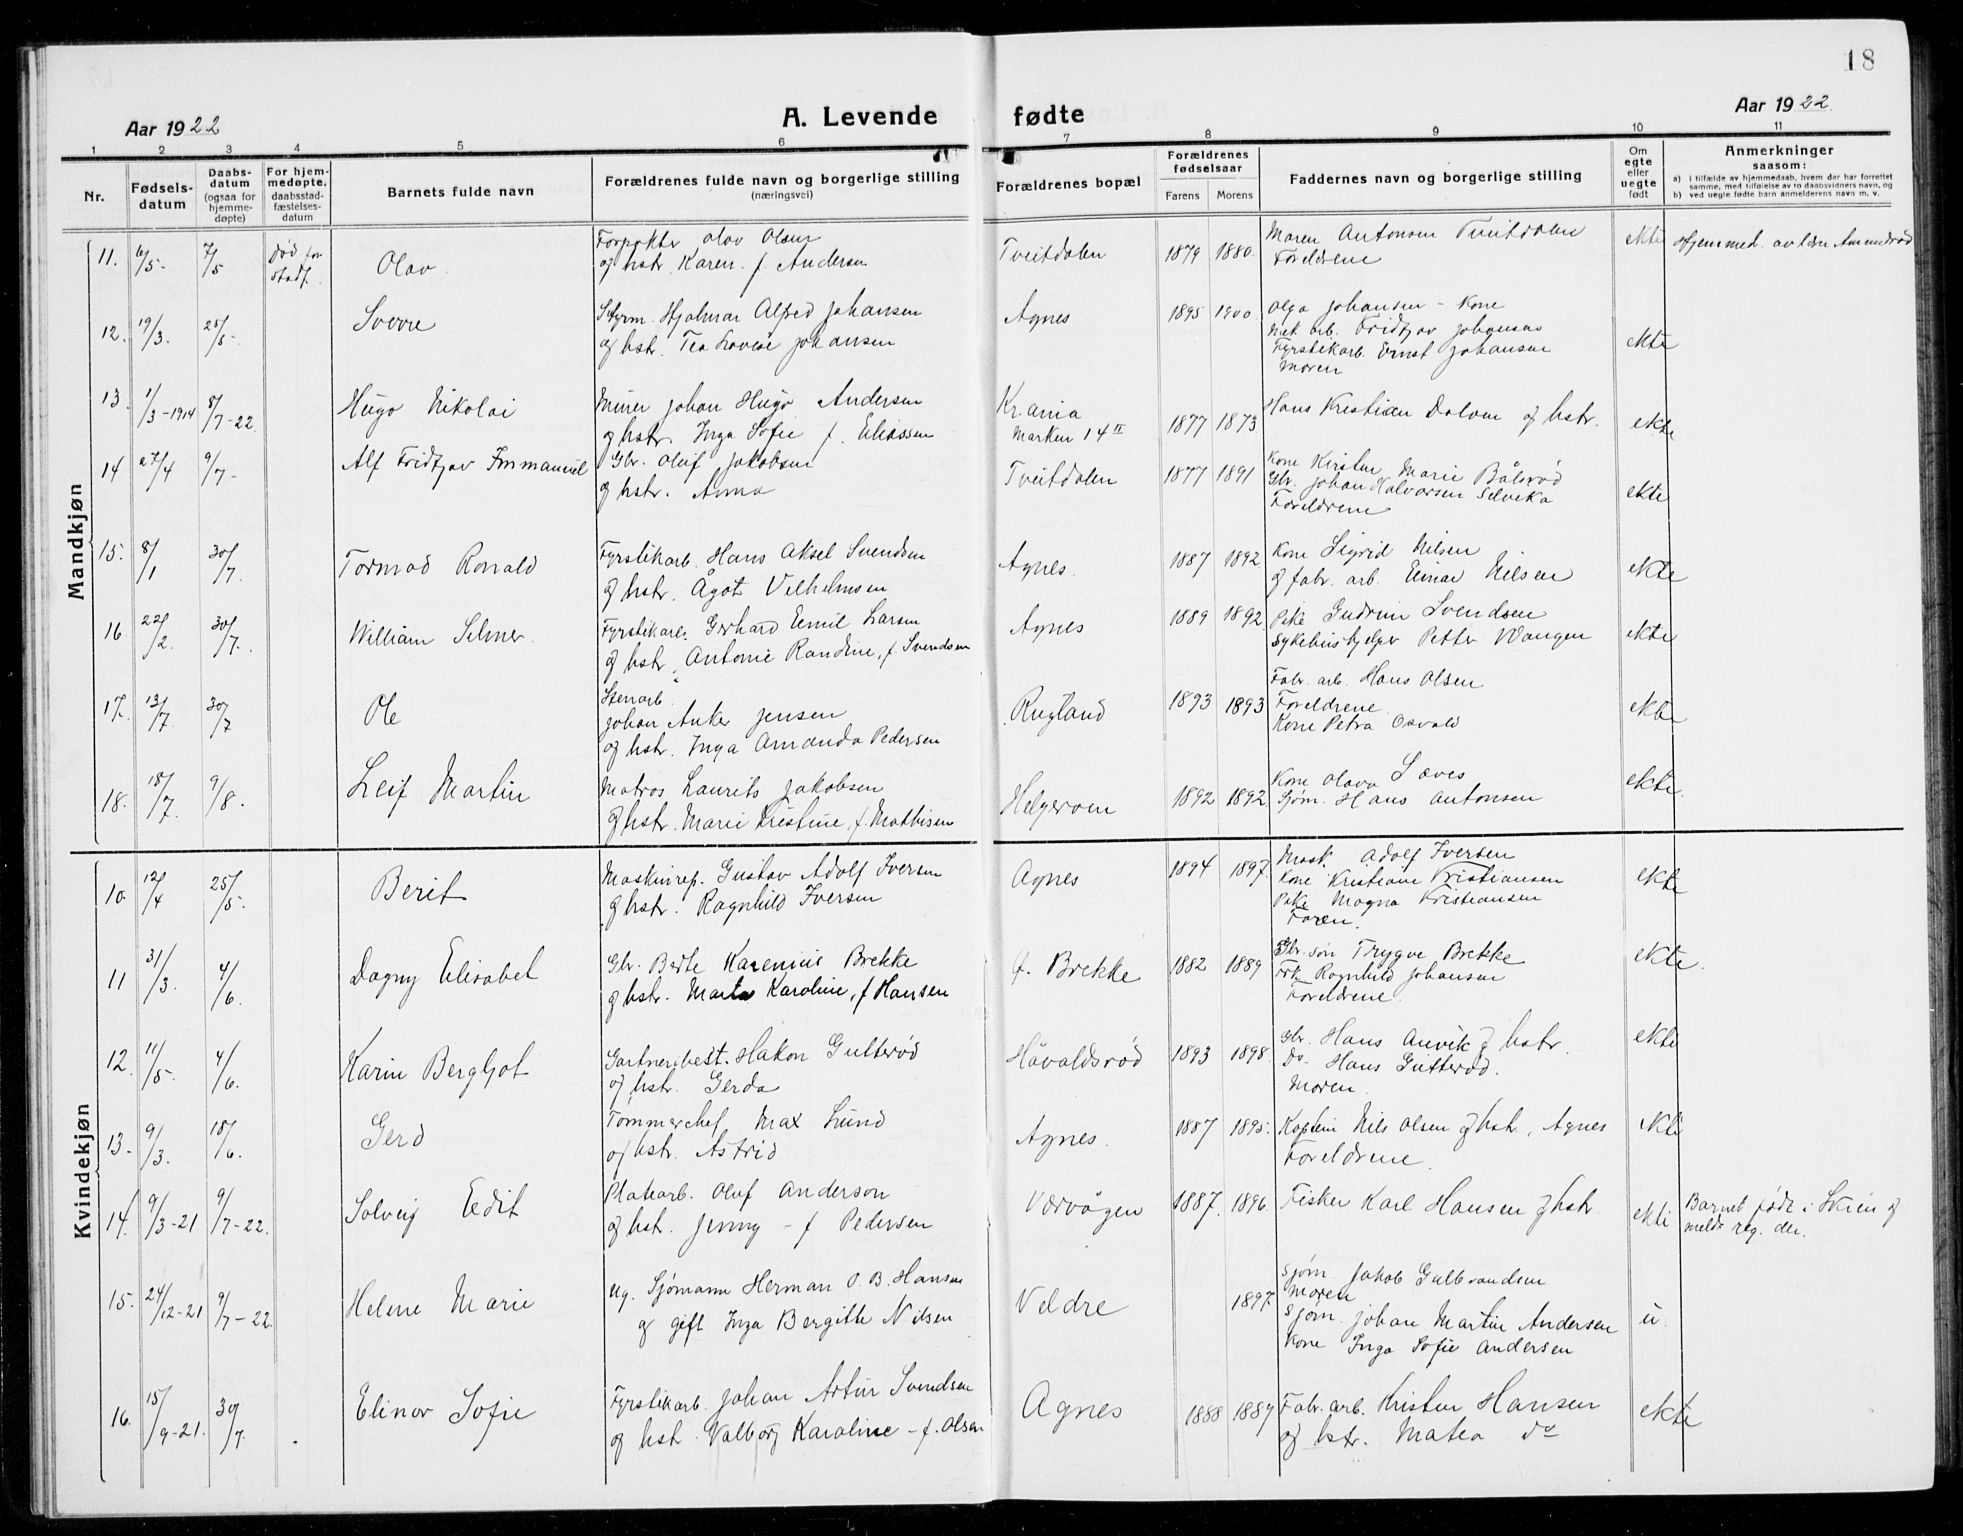 18
Aar 1922
A. Levende
fødte
Aar 1922
1 2 3 4 5 6 7 8 9 10 11
Nr.
Fødsels-
datum
Daabs-
datum
(ogsaa for
hjemme-
døpte)
For hjem-
medøpte,
daabsstad-
fæstelses-
datum
Barnets fulde navn
Forældrenes fulde navn og borgerlige stilling
(næringsvei)
Forældrenes bopæl
Forældrenes
fødselsaar
Farens Morens
Faddernes navn og borgerlige stilling
Om
egte
eller
uegte
født
Anmerkninger
saasom:
a) i tilfælde av hjemmedaab, hvem der har forrettet
samme, med tilføielse av to daabsvidners navn, og
b) ved uegte fødte barn anmelderens navn m. v.
Mandkjøn
11. 6/5- 7/5 Død før stadf. Olav
Forpakter Olav Olsen
og hstr. Karen f. Andersen
Tveitdalen 1879 1880
Maren Antonsen Tveitdalen
Foreldrene
ekte
Hjemmed. av
12. 19/3. 25/5- Sverre
Styrm. Hjalmar Alfred Johansen
og hstr. Tea Lovise Johansen
Agnes 1895 1900
Olga Johansen - Kone
Mek. arb. Fridtjov Johansen
Fyrstikarb. Ernst Johansen
Moren
ekte
13. 1/3-1914 8/7-22 Hugo Nikolai
Murer Johan Hugo Andersen
og hstr. Inga Sofie f. Eliassen
Kr.ania
Marken 14 II
1877 1873
Hans Kristian Dolven og hstr.
ekte
14 27/4 9/7- Alf Fridtjov Immanuel
Gbr. Oluf Jakobsen
og hstr. Anna
Tveitdalen 1877 1891
Kone Kirsten Marie Bålsrød
Gbr. Johan Halvorsen Selvika
Foreldrene
ekte
15. 8/1 30/7. Tormod Ronald
Fyrstikarb. Hans Aksel Svendsen
og hstr. Ågot Vilhelmsen
Agnes. 1887 1892
Kone Sigrid Nilsen
og fabr. arb. Einar Nilsen
ekte
16 22/2. 30/7. William Selmer
Fyrstikarb. Gerhard Emil Larsen
og hstr. Antonie Randine, f. Svendsen
Agnes 1889 1892
Pike Gudrun Svendsen
Sykehushjelper Petter Wangen
ekte
17. 13/7. 30/7 Ole
Stenarb.
Johan Anker Jensen
og hstr. Inga Amanda Pedersen
Rugland 1893 1893
Fabr. arb. Hans Olsen
Foreldrene
Kone Petra Osvald
ekte
18. 18/7. 9/8. Leif Martin
Matros Laurits Jakobsen
og hstr. Marie Kristine, f. Mathisen
Helgerom 1892 1892
Kone Olava
Sjøm. Hans Antonsen
ekte.
Kvindekjøn
10. 12/4 25/5. Berit
Maskinrep. Gustav Adolf Iversen
og hstr. Ragnhild Iversen
Agnes 1894 1897
Mask. Adolf Iversen
Kone Kristiane Kristiansen
Pike Magna Kristiansen
Faren.
ekte
11 31/3. 4/6. Dagny Elisabet
Gbr. Karenius Brekke
og hstr. Marta Karoline, f Hansen
Brekke 1882 1889
Gbr. søn Trygve Brekke
Frk Ragnhild Johansen
Foreldrene.
ekte.
12. 11/5. 4/6. Karin Bergljot
Gartnerbest. Håkon Gutterød
og hstr. Gerda
Håvaldsrød 1893 1898
Gbr. Hans Anvik og hstr.
Do Hans Gutterød.
Moren.
ekte
13. 9/3. 18/6. Gerd
Tømmerchef Max Lund
og hstr. Astrid
Agnes. 1887 1895.
Kaptein Nils Olsen og hstr, Agnes
Foreldrene
ekte
14. 9/3-21 9/7-22. Solveig Edit
Platearb. Oluf Anderson
og hstr. Jenny - f Pedersen
Værvågen 1887. 1896.
Fisker Karl Hansen og hstr.
ekte
Barnet født i Skien og
meldt reg. der.
15. 24/12-21 9/7-22. Helene Marie
ug. Sjømann Herman O. B. Hansen
og gift Inga Bergitte Nilsen
Veldre 1897.
Sjøm. Jakob Gulbrandsen
Moren
Sjøm. Johan Martin Andersen
Kone Inga Sofie Andersen
u.
16. 15/9-21. 30/7. Elinor Sofie
Fyrstikarb. Johan Artur Svendsen
og hstr. Valborg Karoline - f. Olsen
Agnes 1888 1889
Fabr. arb. Kristen Hansen
og hstr. Matea do
ekte